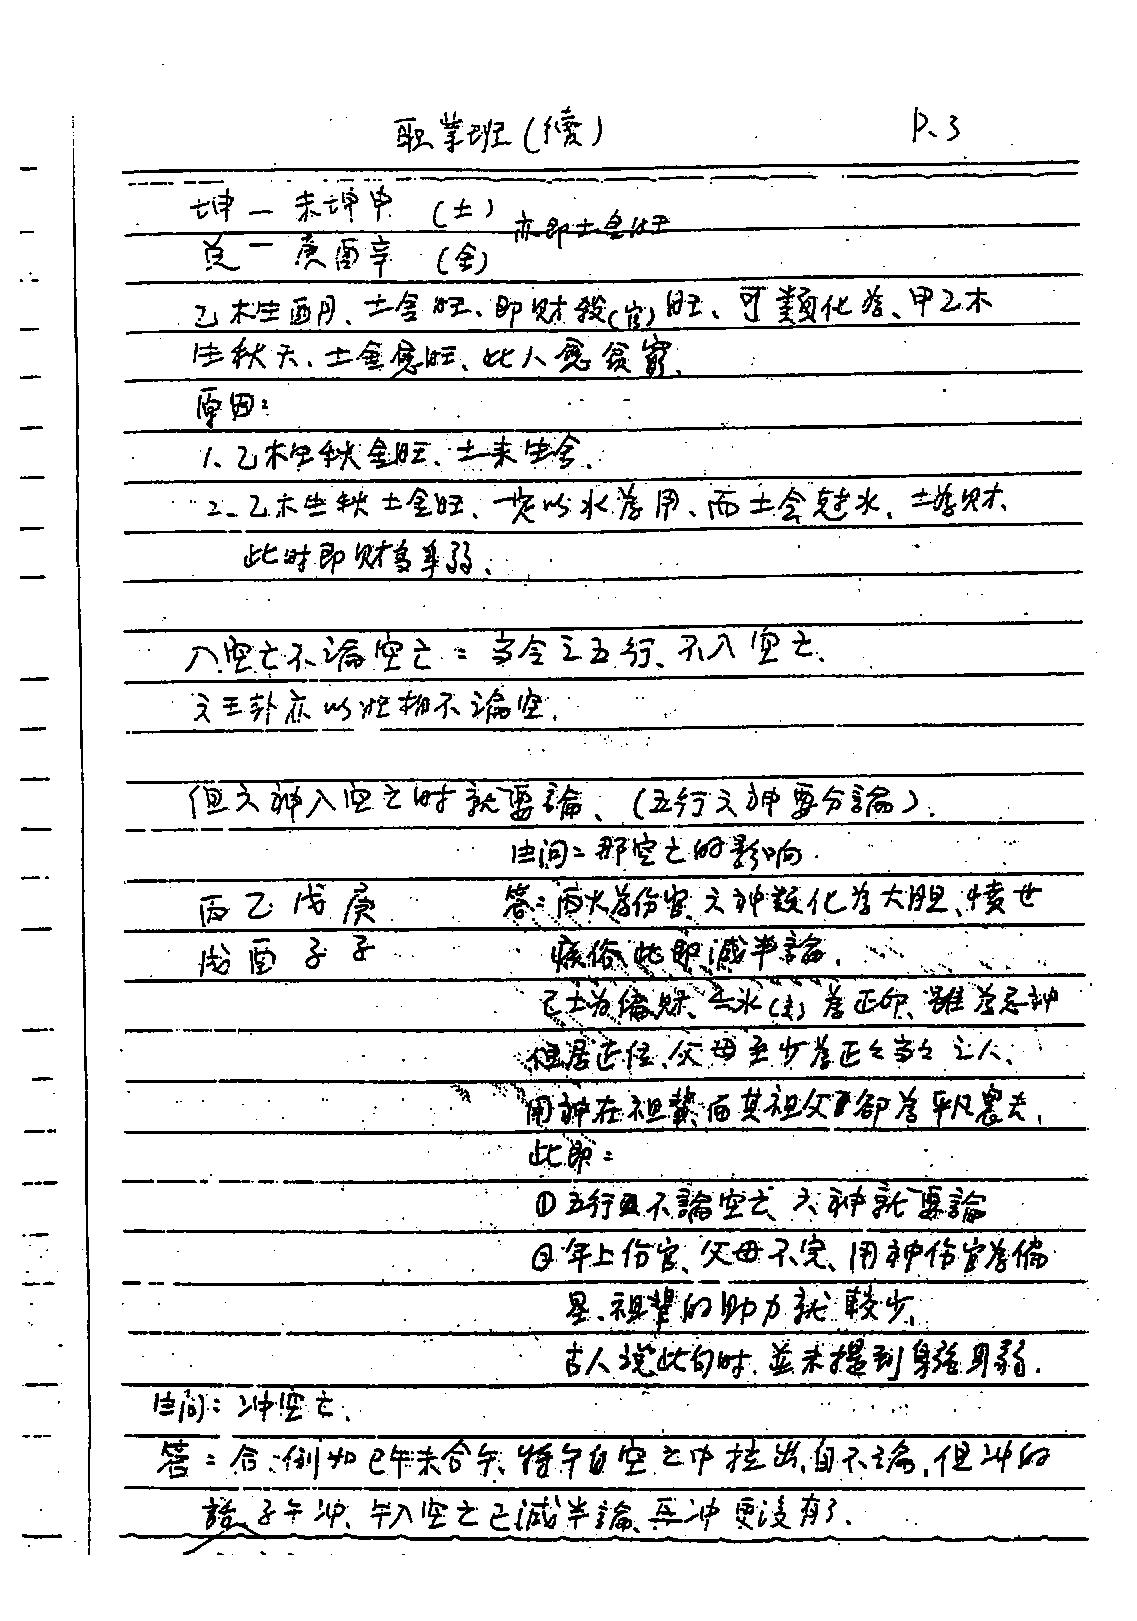 职業班(續) P.3
坤一未坤申 (土) 亦即土金旺
兌一庚酉辛 (金)
乙木生酉月、土金旺、即財殺(官)旺、可類化為、甲乙木
生秋天、土金愈旺、此人愈貧窮、
原因:
1、乙木生秋金旺、土来生金、
2、乙木生秋土金旺、一定以水為用、而土会尅水、土為財、
此时即財多身弱、
入空亡不論空亡:当令之五行、不入空亡、
文王卦亦以旺相不論空、
但六神入空亡时就要論、(五行六神要分論)、
生问:那空亡的影响
丙乙戊庚 答:丙火為伤官、六神類化為大胆、憤世
戌酉子子 疾俗、此即減半論、
己土为偏財、壬水(子)為正印、雖為忌神
但居正位、父母至少為正々当々之人、
用神在祖輩、而其祖父卻為平凡農夫、
此即:
① 五行不論空亡、六神就要論
② 年上伤官、父母不完、用神伤官為偏
星、祖輩的助力就較少、
古人說此句时、並未提到身強身弱、
生问:冲空亡、
答:合、例如巳午未合午、將午自空亡中拉出、自不論、但冲的
話、子午冲、午入空亡已減半論、再冲更沒有了、